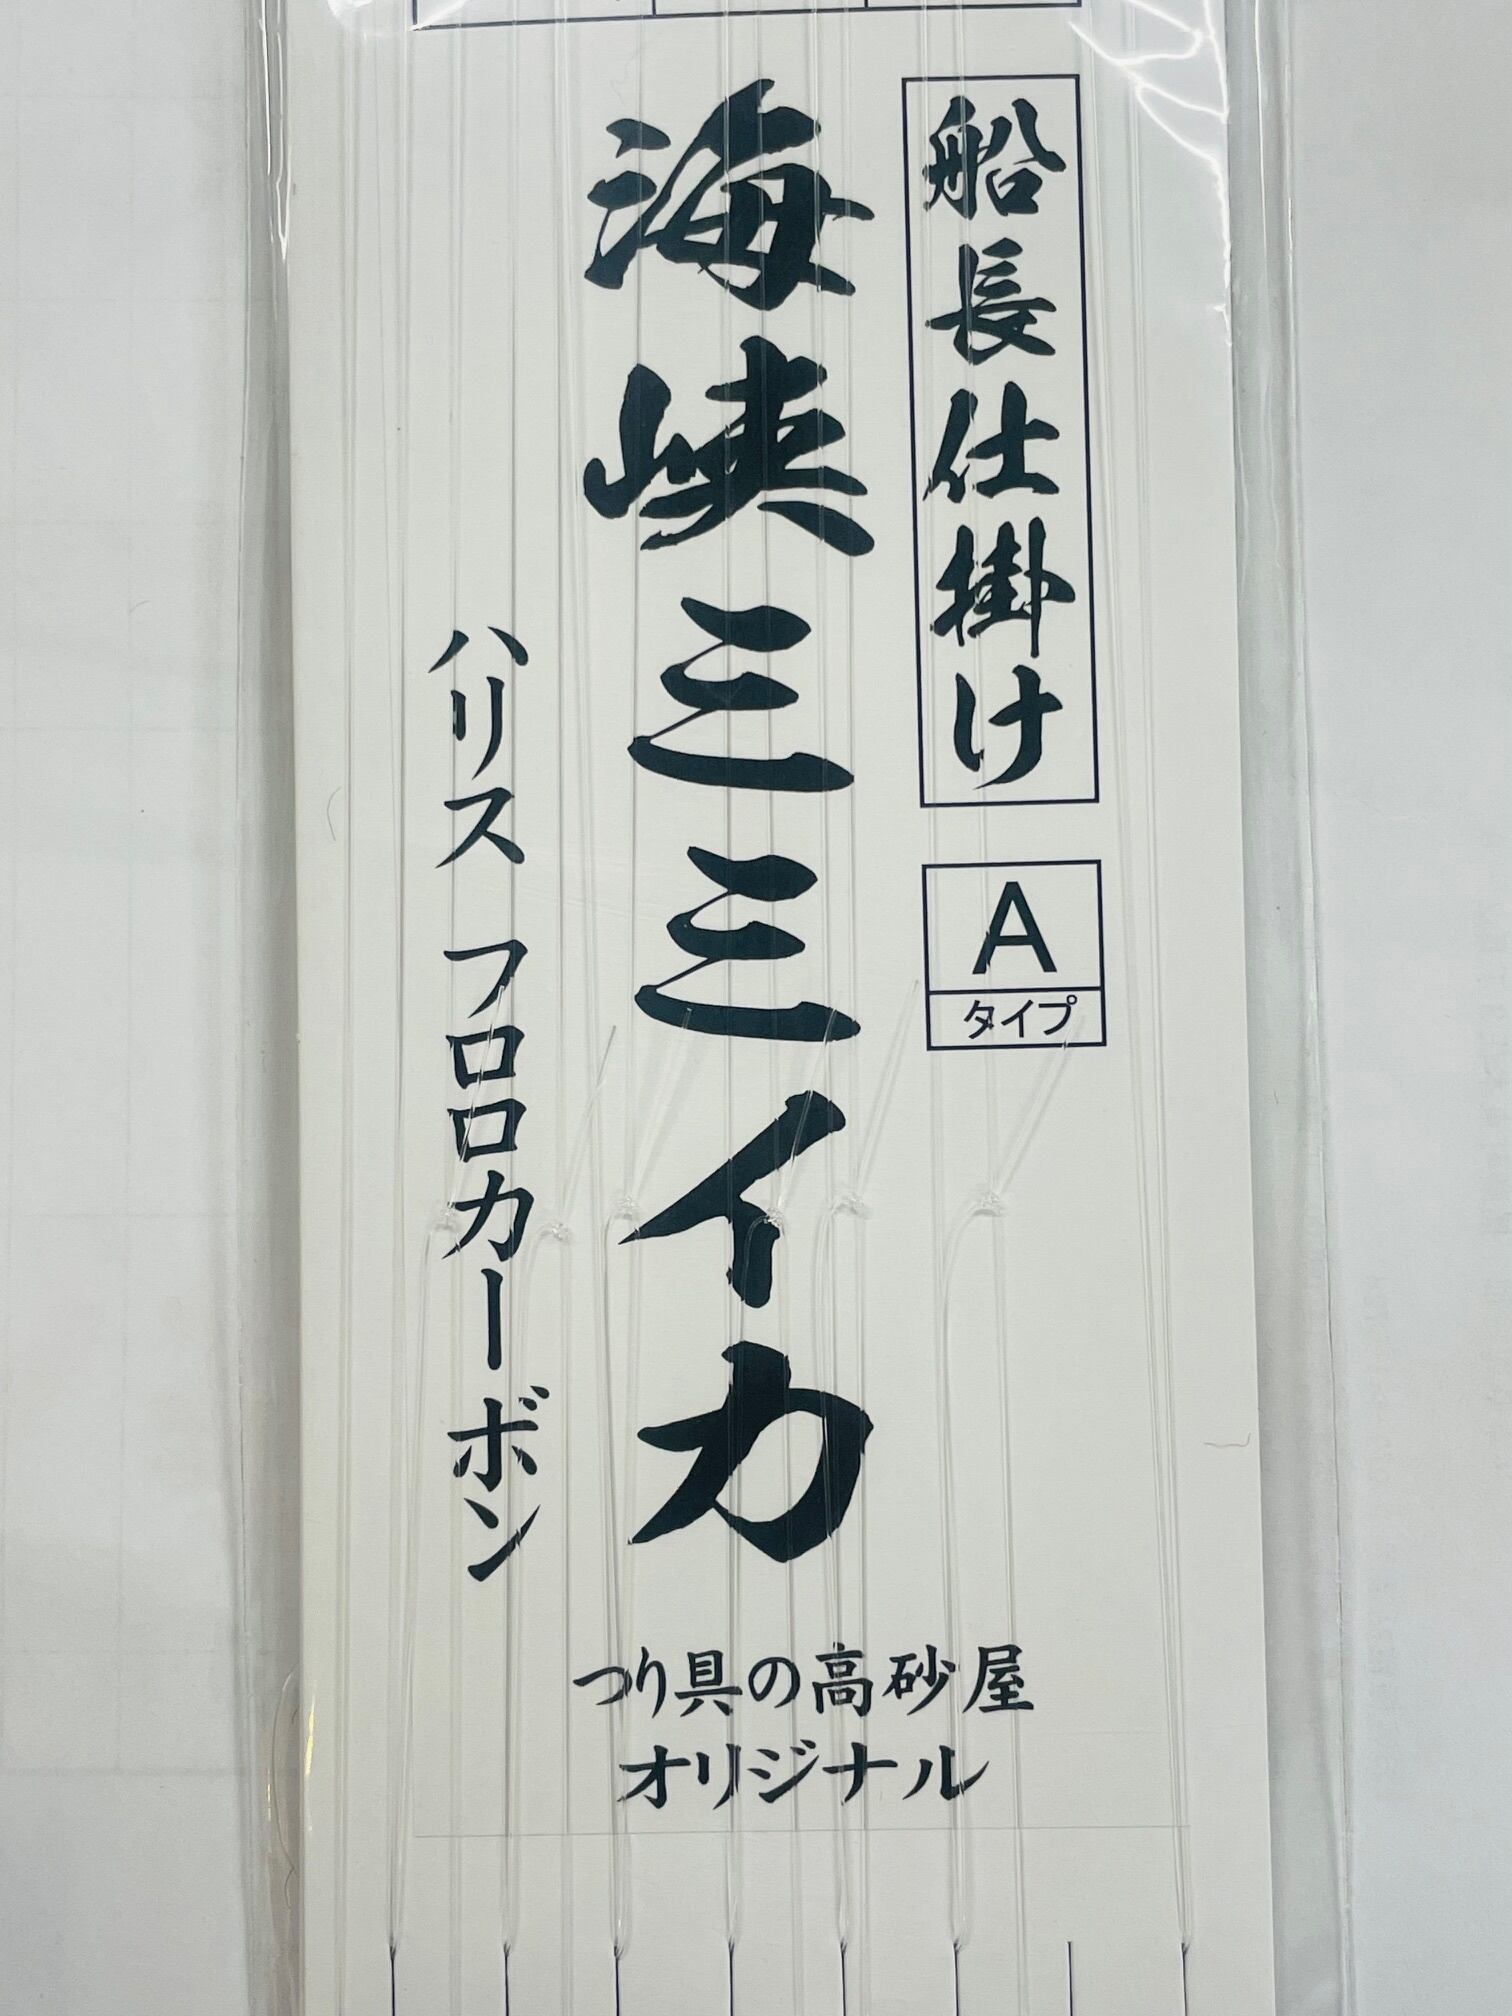 船長仕掛け
A
タイプ
海峡ミミイカ
ハリス フロロカーボン
つり具の高砂屋
オリジナル